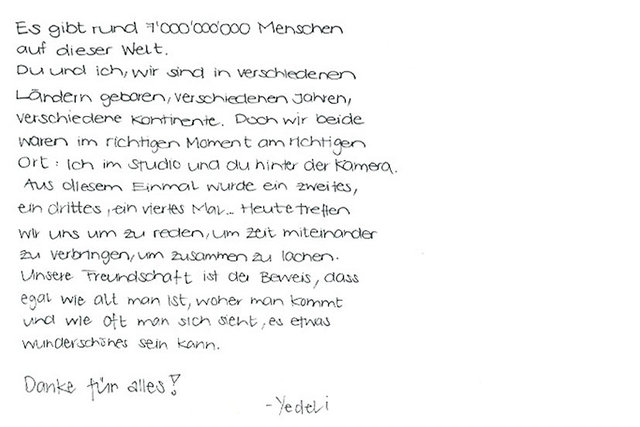 Es gibt rund 7'000'000'000 Menschen
auf dieser Welt.
Du und ich, wir sind in verschiedenen
Ländern geboren, verschiedenen Jahren,
verschiedene Kontinente. Doch wir beide
waren im richtigen Moment am richtigen
Ort: Ich im Studio und du hinter der Kamera.
Aus diesem Einmal wurde ein zweites,
ein drittes, ein viertes Mal... Heute treffen
wir uns um zu reden, um Zeit miteinander
zu verbringen, um zusammen zu lachen.
Unsere Freundschaft ist der Beweis, dass
egal wie alt man ist, woher man kommt
und wie oft man sich sieht, es etwas
wunderschönes sein kann.
Danke für alles!
- Yedeli